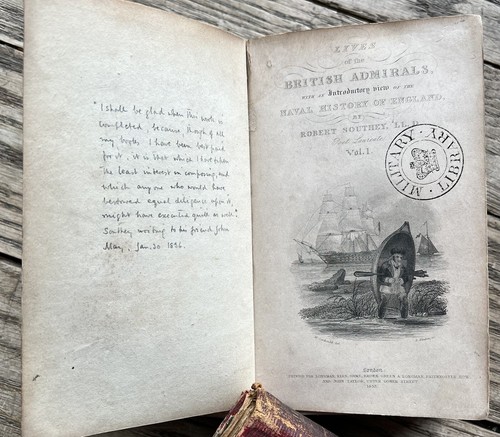 "I shall be glad when this book is
completed, because, though of all
my books, I have been best paid
for it, it is that which I have taken
the least interest in composing, and
which any one who would have
bestowed equal diligence upon it,
might have executed quite as well."
Southey, writing to his friend John
May, Jan. 30 1836.
LIVES
of the
BRITISH ADMIRALS,
WITH AN Introductory view OF THE
NAVAL HISTORY OF ENGLAND.
BY
ROBERT SOUTHEY, LL.D.
Poet Laureate.
Vol. I.
MILITARY LIBRARY
London:
PRINTED FOR LONGMAN, REES, ORME, BROWN, GREEN & LONGMAN, PATERNOSTER ROW
AND JOHN TAYLOR, UPPER GOWER STREET.